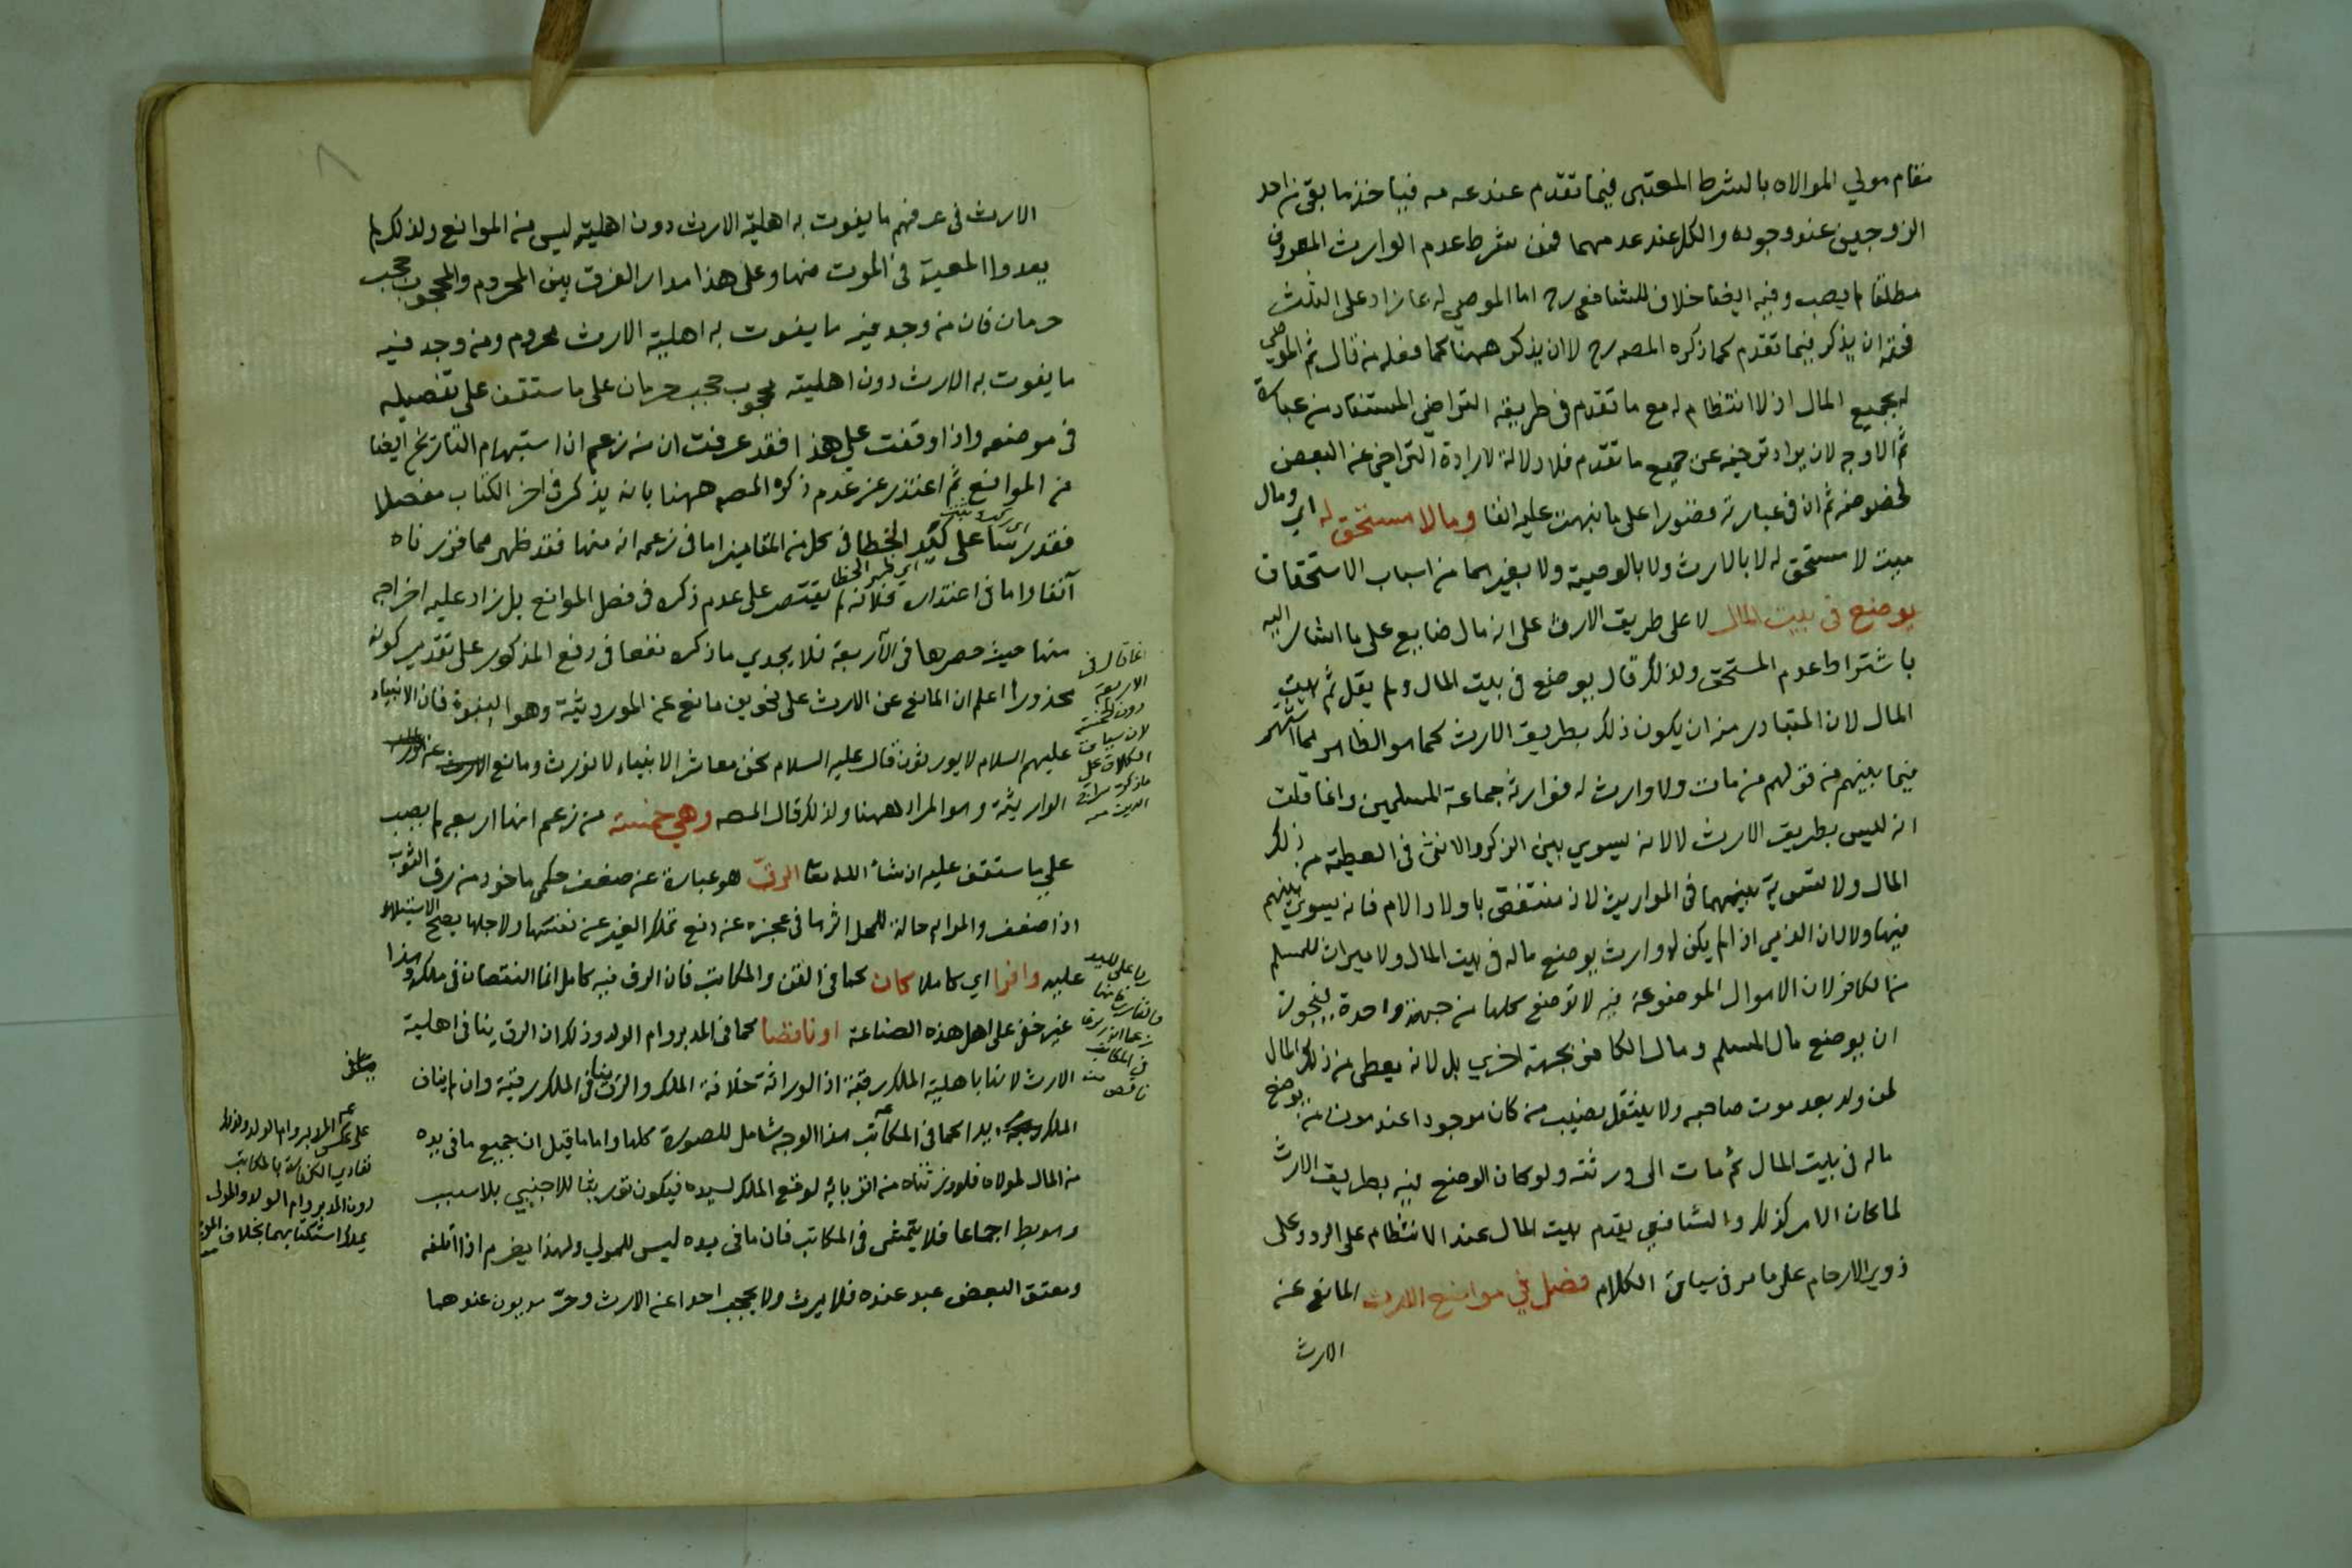 مقام مولي الموالاه بالشرط المعتبر فيما تقدم عند عدمه فيأخذ ما بقى من احد
الزوجين عند وجوده والكل عند عدمهما فمن شرط عدم الوارث المعروف
مطلقا لم يصب وفيه ايضا خلاف للشافعى رح اما الموصى له بما زاد على الثلث
فحقه ان يذكر فيما تقدم كما ذكره المصه رح لا ان يذكر ههنا كما فعله من قال ثم الموصى
له بجميع المال اذ لا انتظام له مع ما تقدم فى طريقة التراضى المستفاد من عبارة
ثم الاوجه لان يراد ترخيه عن جميع ما تقدم فلا دلالة لارادة التراخى عن البعض
لخصوصه ثم ان فى عبارته قصورا على ما نبهت عليه انفا ومالا مستحق له اي ومال
ميت لا مستحق له لا بالارث ولا بالوصية ولا بغيرهما من اسباب الاستحقاق
يوضع فى بيت المال لا على طريق الارث على انه مال ضايع على ما اشار اليه
باشتراط عدم المستحق ولذلك قال يوضع فى بيت المال ولم يقل ثم بيت
المال لان المتبادر منه ان يكون ذلك بطريق الارث كما هو الظاهر مما اشتهر
فيما بينهم من قولهم من مات ولا وارث له فوارثه جماعة المسلمين وانما قلت
انه ليس بطريق الارث لا لانه يسوي بين الذكر والانثى فى العطية من ذلك
المال ولا تسوية بينهما فى المواريث لانه منتقض باولاد الام فانه يسوي بينهم
فيها ولا لان الذمي اذا لم يكن له وارث يوضع ماله فى بيت المال ولا ميراث للمسلم
من الكافر لان الاموال الموضوعة فيه لا توضع كلها من جهة واحدة فيجوز
ان يوضع مال المسلم ومال الكافر بجهة اخري بل لانه يعطى من ذلك المال
لمن ولد بعد موت صاحبه ولا ينتقل نصيب من كان موجودا عند موت من يوضع
ماله فى بيت المال ثم مات الى ورثته ولو كان الوضع فيه بطريق الارث
لما كان الامر كذلك والشافعي يقدم بيت المال عند الانتظام على الرد وعلى
ذوي الارحام على ما مر فى سياق الكلام فصل في موانع الارث المانع عن
الارث
الارث فى عرفهم ما يفوت به اهلية الارث دون اهليته ليس من الموانع ولذلك لم
يعدوا المعية فى الموت منها وعلى هذا مدار الفرق بين المحروم والمحجوب حجب
حرمان فان من وجد فيه ما يفوت به اهلية الارث محروم ومن وجد فيه
ما يفوت به الارث دون اهليته محجوب حجب حرمان على ما ستقف على تفصيله
فى موضعه واذا وقفت على هذا فقد عرفت ان من زعم ان استبهام التاريخ ايضا
من الموانع ثم اعتذر عن عدم ذكره المصه ههنا بانه يذكر فى اخر الكتاب مفصلا
فقد على الخطا فى كل من المقامين اما فى زعمه انه منها فقد ظهر مما قررناه
آنفا واما فى اعتذاره فلانه لم يقتصر على عدم ذكره فى فصل الموانع بل زاد عليه اخراجه
منها حيث حصرها فى الاربعة فلا يجدي ما ذكره نفعا فى دفع المذكور على تقدير كونه
محذورا اعلم ان المانع عن الارث على نحوين مانع عن المورديثة وهو النبوة فان الانبياء
عليهم السلام لا يورثون قال عليه السلام نحن معاشر الانبياء لا نورث ومانع عن
الوارثية وهو المراد ههنا ولذلك قال المصه وهي خمسة من زعم انها اربعه لم يصب
على ما ستقف عليه ان شاء الله تعا الرق هو عبارة عن ضعف حكمى ماخوذ من رق الثوب
اذا ضعف والمراد حالة للمحل اثرها فى عجزه عن دفع تملك الغير عن نفسها ولاجلها يصح الاستيلاء
عليه وافرا اي كاملا كان كما فى القن والمكاتب فان الرق فيه كامل انما النقصان فى ملكه وهذا
غير خفى على اهل هذه الصناعة او ناقصا كما فى المدبر وام الولد وذلك ان الرق ينافى اهلية
الارث لانها باهلية الملك رقبة اذ الوراثة خلافة الملك والرق ينافى الملك رقبة وان لم يناف
الملك يدا كما فى المكاتب هذا الوجه شامل للصورة كلها واما ما قيل ان جميع ما فى يده
من المال لمولاه فلو ورثناه من اقربائه لوقع الملك لسيده فيكون توريثا للاجنبي بلا سبب
وهو بط اجماعا فلا يتمشى فى المكاتب فان ما فى يده ليس للمولي ولهذا يغرم اذا اتلفه
ومعتق البعض عبد عنده فلا يرث ولا يحجب احدا عن الارث وحر مديون عندهما
انما قال فى
الاربعة
دون الخمسة
لان سياق
الكلام على
رد على السيد
فى المكاتب
ناقص منه
على عكس المدبر وام الولد ولذلك
تتادي الكفارة بالمكاتب
دون المدبر وام الولد والمولى
يملك استكتابهما بخلاف